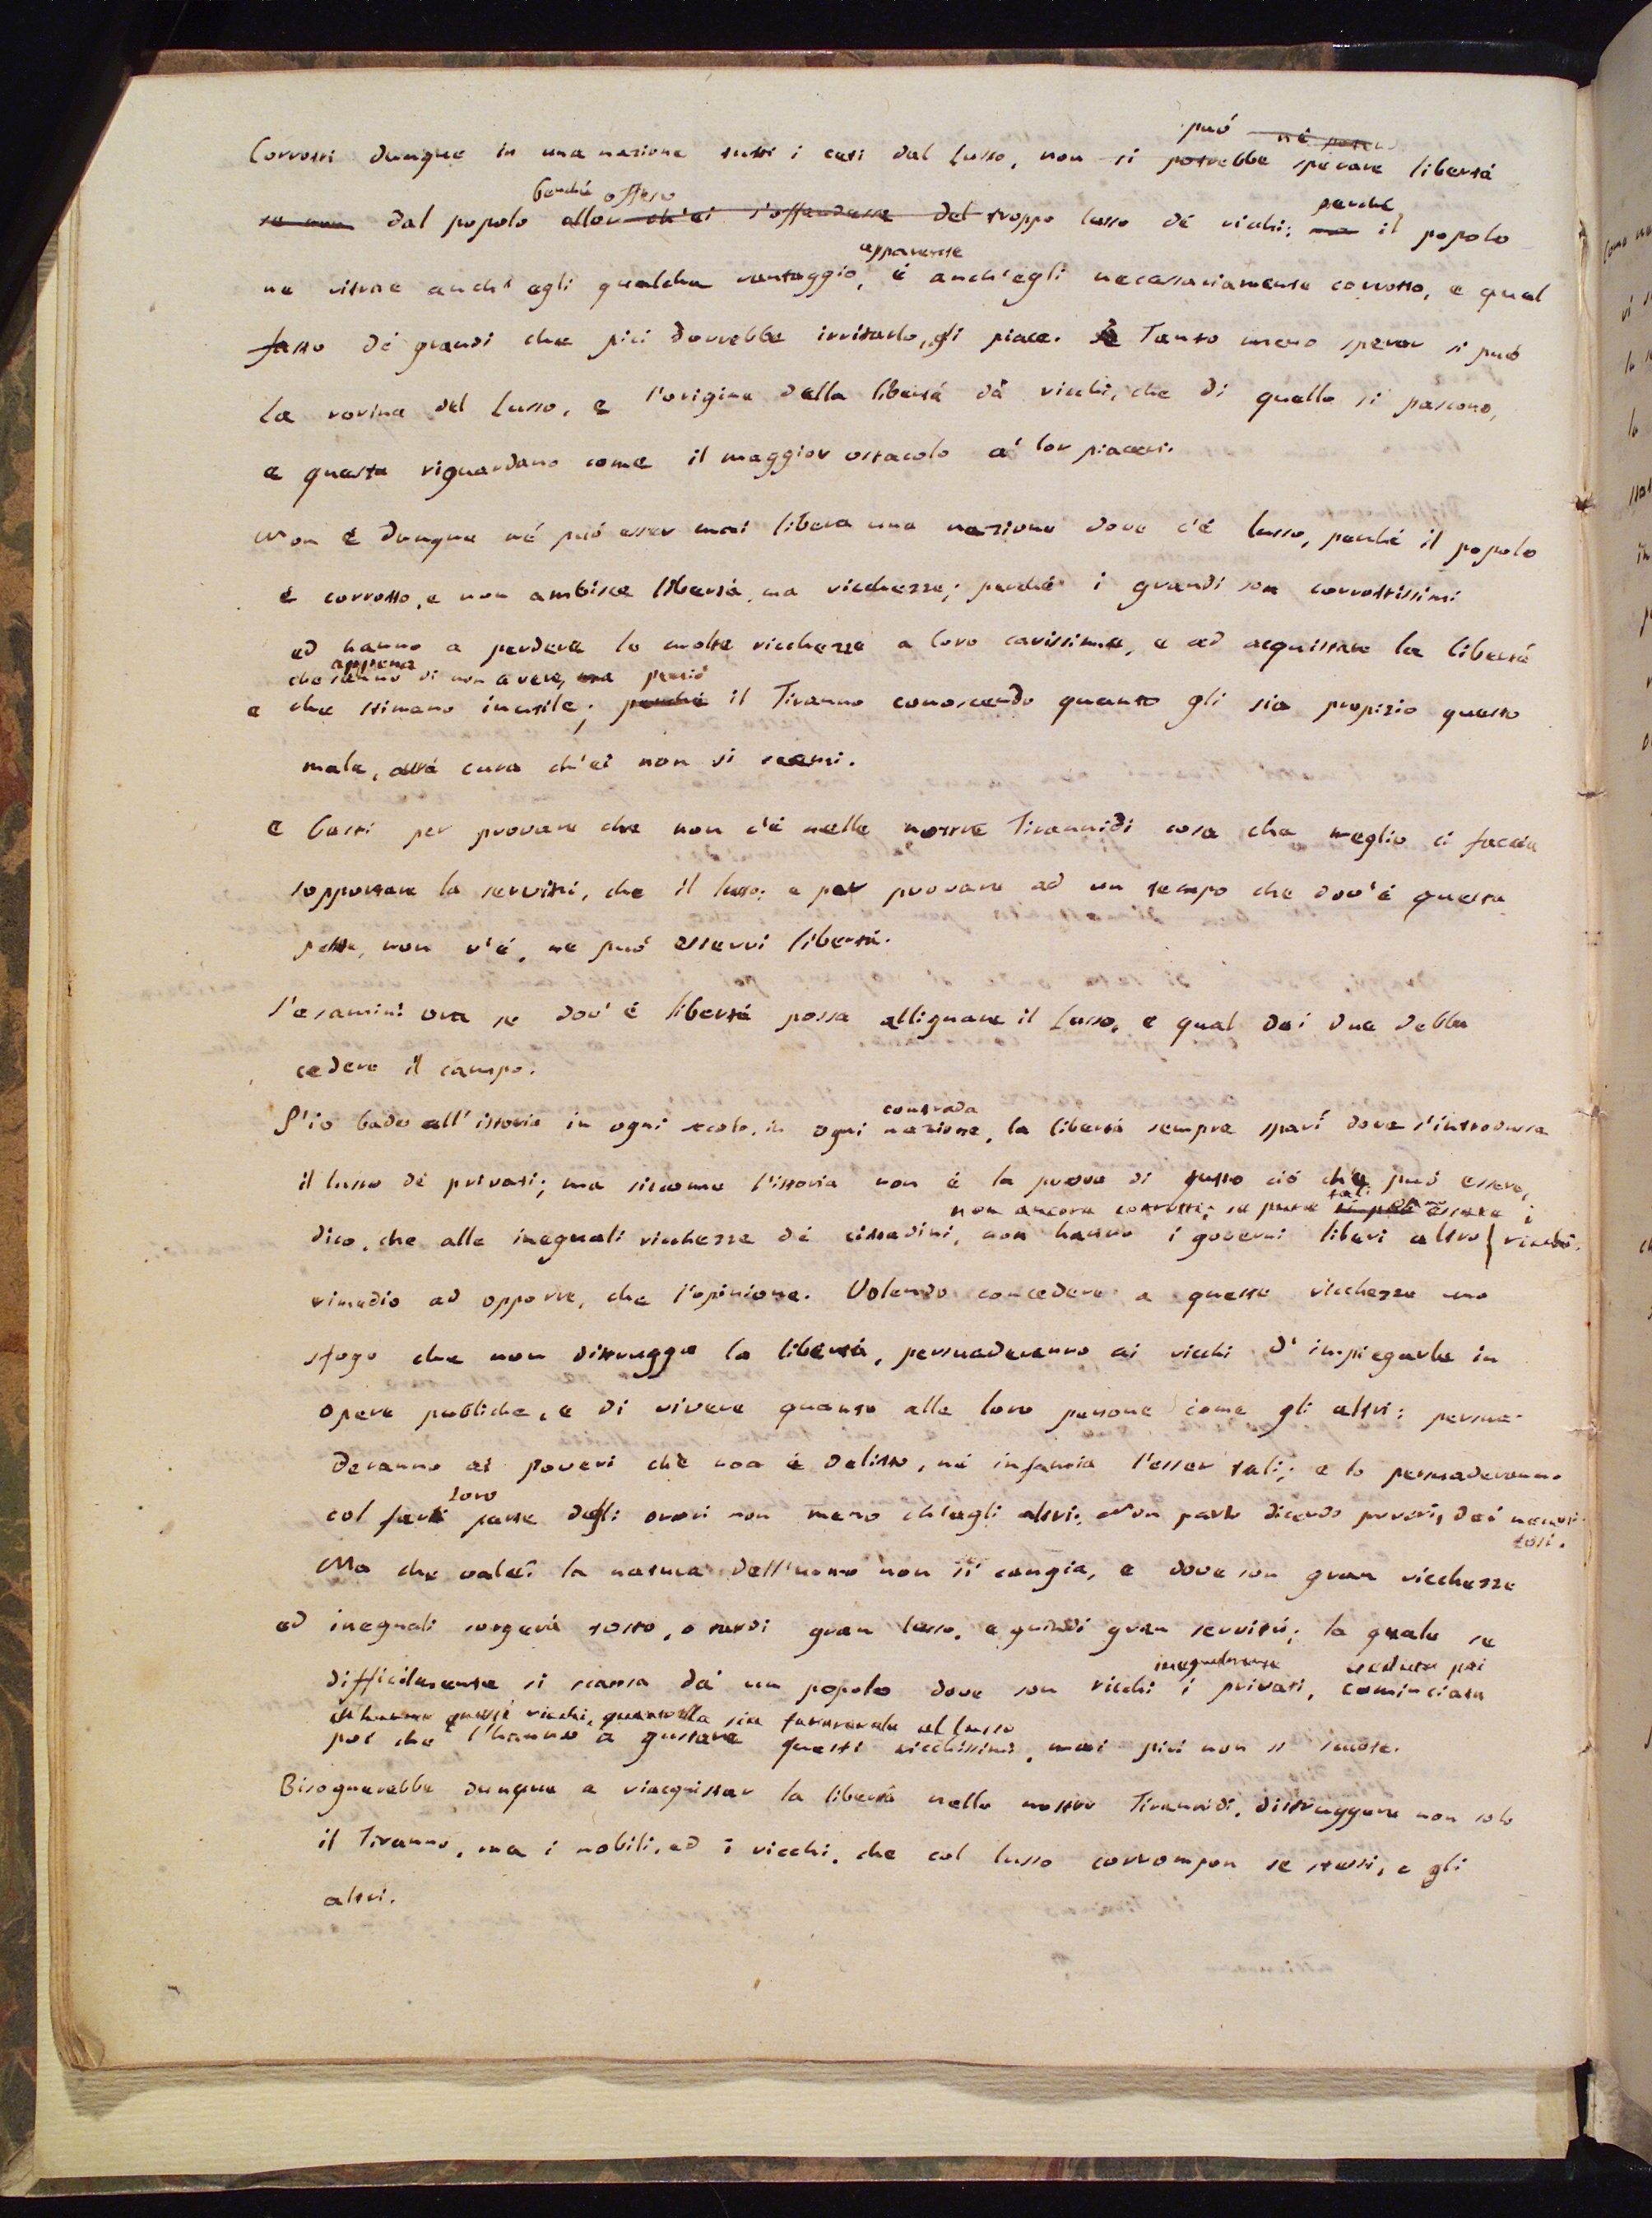 può né
Corrotti dunque in una nazione tutti i ceti dal lusso, non si potrebbe sperare libertà
benché offeso perché
se non dal popolo allor ch'ei s'offendesse del troppo lusso de' ricchi: ma il popolo
apparente
ne ritrae anch'egli qualche vantaggio, è anch'egli necessariamente corrotto, e quel
fasto de' grandi che più dovrebbe irritarlo, gli piace. Tanto meno sperar si può
la rovina del lusso, e l'origine della libertà da' ricchi, che di quello si pascono,
e questa riguardano come il maggior ostacolo a' lor piaceri.
Non è dunque né può esser mai libera una nazione dove c'è lusso, perché il popolo
è corrotto, e non ambisce libertà, ma ricchezze; perché i grandi son corrottissimi
ed hanno a perdere le molte ricchezze a loro carissime, e ad acquistare la libertà
che sanno appena di non avere, ma perciò
e che stimano inutile; perché il Tiranno conoscendo quanto gli sia propizio questo
male, avrà cura ch'ei non si scemi.
E basti per provare che non c'è nelle nostre Tirannidi cosa che meglio ci faccia
sopportare la servitù, che il lusso: e per provare ad un tempo che dov'è questa
peste, non v'è, ne può esservi libertà.
S'esamini ora se dov'è libertà possa allignare il lusso, e qual dei due debba
cedere il campo.
contrada
S'io bado all'istoria in ogni secolo, in ogni nazione, la libertà sempre sparì dove s'introdusse
il lusso de' privati; ma siccome l'istoria non è la prova di tutto ciò che può essere,
non ancora corrotti; se pure tali essere i
dico, che alle ineguali ricchezze de' cittadini, non hanno i governi liberi altro ricchi.
rimedio ad opporre, che l'opinione. Volendo concedere a queste ricchezze uno
sfogo che non distrugga la libertà, persuaderanno ai ricchi d'impiegarle in
opere publiche, e di vivere quanto alle loro persone come gli altri: persua-
deranno ai poveri che non è delitto, né infamia l'esser tali; e lo persuaderanno
loro
col far parte degli onori non meno ch'agli altri. Non parlo dicendo poveri, dei necessi-
tosi.
Ma che vale? la natura dell'uomo non si cangia, e dove son gran ricchezze
ed ineguali sorgerà tosto, o tardi gran lusso, e quindi gran servitù; la quale se
inegualmente creduta poi
difficilmente si scansa da un popolo dove son ricchi i privati, cominciata
questi ricchi, quanto ella sia favorevole al lusso
poi che l'hanno a gustare questi ricchissimi, mai più non si scuote.
Bisognerebbe dunque a riacquistar la libertà nelle nostre Tirannidi, distruggere non solo
il Tiranno, ma i nobili, ed i ricchi, che col lusso corrompon se stessi, e gli
altri.